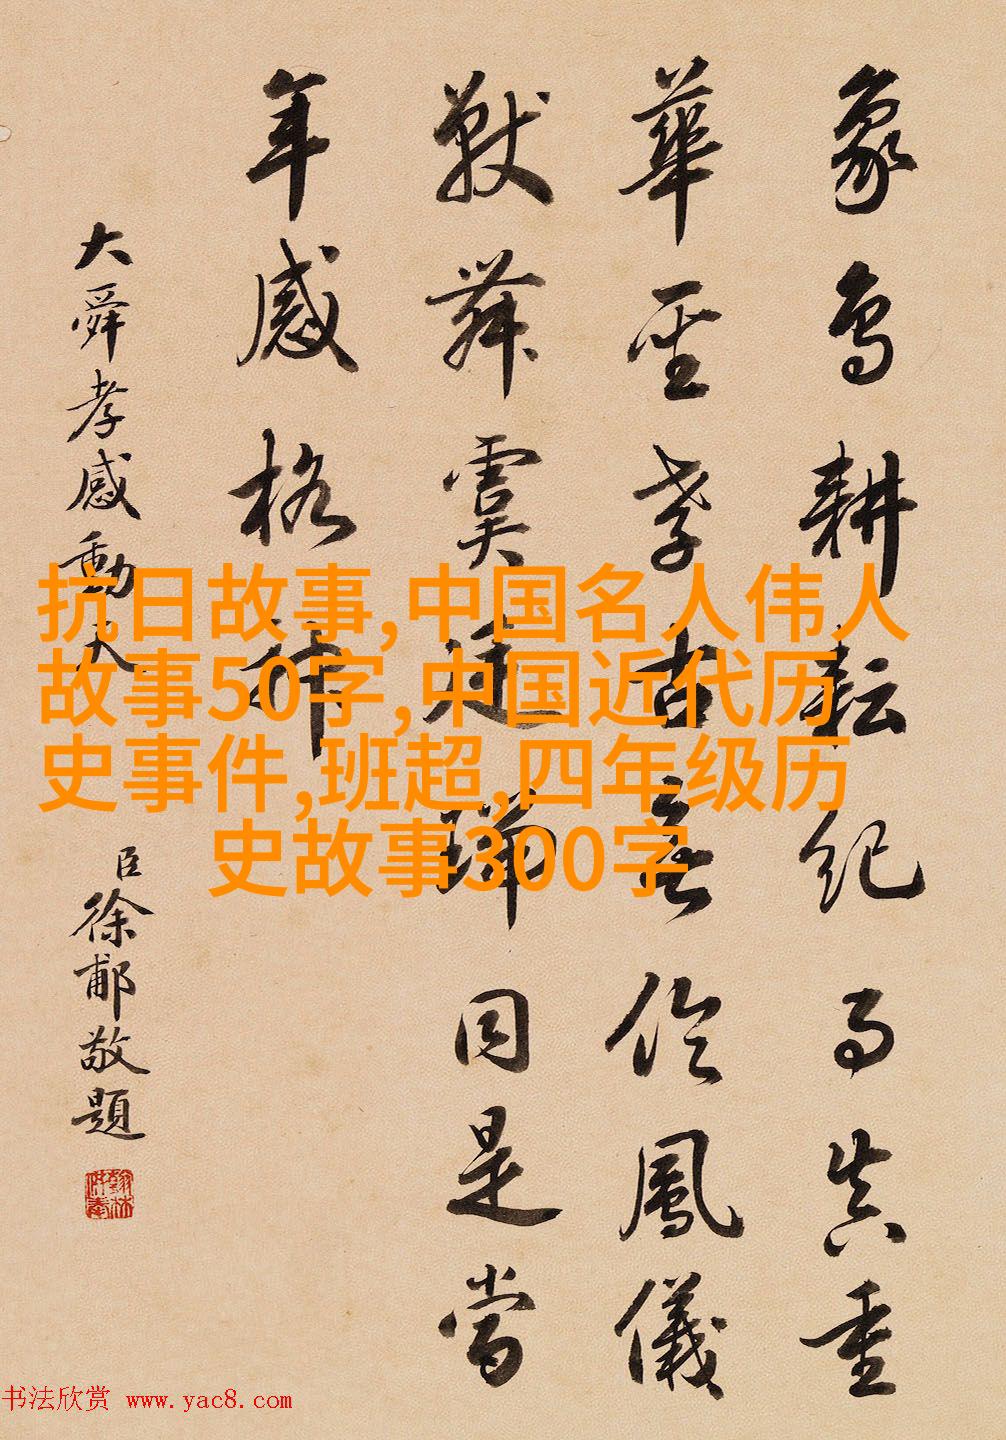 象鳥耕耘紀事真重
華至孝古無倫鳳儀
獸舞虞廷瑞同是當
年感格神
大舜孝感動天
臣徐郙敬題
翰林供奉
抗日故事,中国名人伟人
故事50字,中国近代历
史事件,班超,四年级历
史故事300字
书法欣赏 www.yac8.com